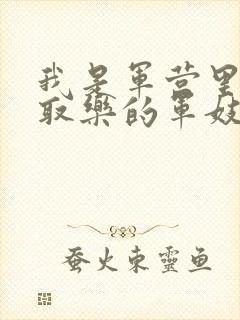 我是军营里
取樂的军妓
蚕火東靈鱼